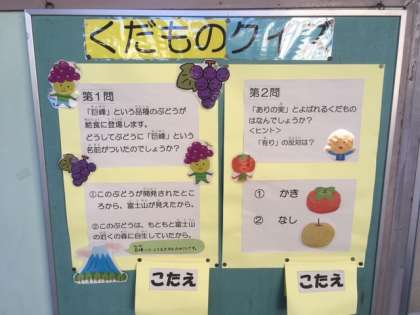 くだものクイズ
第1問
「巨峰」という品種のぶどうが
給食に登場します。
どうしてぶどうに「巨峰」という
名前がついたのでしょうか?
①このぶどうが開発されたとこ
ろから、富士山が見えたから。
②このぶどうは、もともと富士山
の近くの森に自生していたから。
こたえ
第2問
「ありの実」とよばれるくだもの
はなんでしょうか?
<ヒント>
「有り」の反対は?
① かき
② なし
こたえ